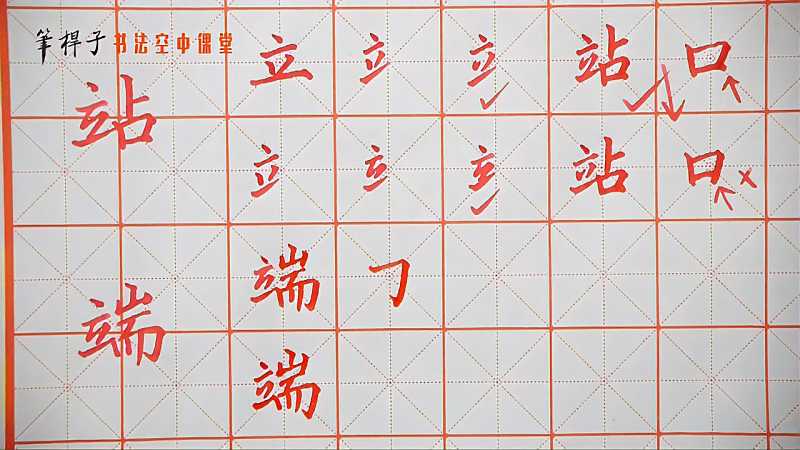 筆桿子书法空中课堂
站
立 立 立 站 口
立 立 立 站 口
端
端 ㇆
端